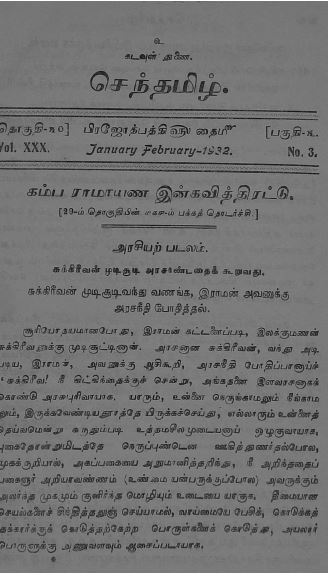 உ
கடவுள் துணை.
செந்தமிழ்.
தொகுதி-௩௦] பிரஜோத்பத்தி௵ தைமீ [பகுதி-௩.
Vol. XXX. January February-1932. No. 3.
கம்ப ராமாயண இன்கவித்திரட்டு.
[29-ம் தொகுதியின் பக்கத் தொடர்ச்சி.]
அரசியற் படலம்.
சுக்கிரீவன் முடிசூடி அரசாண்டதைக் கூறுவது.
சுக்கிரீவன் முடிசூடிவந்து வணங்க, இராமன் அவனுக்கு
அரசநீதி போதித்தல்.
சூரியோதயமானபோது, இராமன் கட்டளைப்படி, இலக்குமணன்
சுக்கிரீவனுக்கு முடிசூட்டினான். அரசனான சுக்கிரீவன், வந்து அடி
பணிய, இராமன், அவனுக்கு ஆசிகூறி, அரசநீதி போதிப்பானாய்ச்
'சுக்கிரீவ! நீ கிட்கிந்தைக்குச் சென்று, அங்கதனை இளவரசனாகக்
கொண்டு அரசுபுரிவாயாக. யாரும், உன்னை நெருங்காமலும் நீங்காம
லும், இருக்கவேண்டியதூரத்தே யிருக்கச்செய்து, எல்லாரும் உன்னைத்
தெய்வமென்று கருதும்படி உத்தமசீலமுடையனாய் ஒழுகுவாயாக,
புகைதோன்றுமிடத்தே நெருப்புண்டென ஊகித்துணர்தல்போல,
முகக்குறியால், அகப்பகையை அறுமானித்தறிந்து, நீ அறிந்ததைப்
பகைஞர் அறியாவண்ணம் (உண்மை யன்பருக்குப்போல) அவருக்கும்
அலர்ந்த முகமும் குளிர்ந்த மொழியும் உடையை யாகுக. தீமையான
செயல்களைச் சிந்தித்தலுஞ் செய்யாமல், வாய்மையே பேசிக், கொடுக்கத்
தக்கார்க்குக் கொடுத்தற்கேற்ற பொருள்களைக் கொடுத்து, அயலார்
பொருளுக்கு அணுவளவும் ஆசைப்படாயாக.